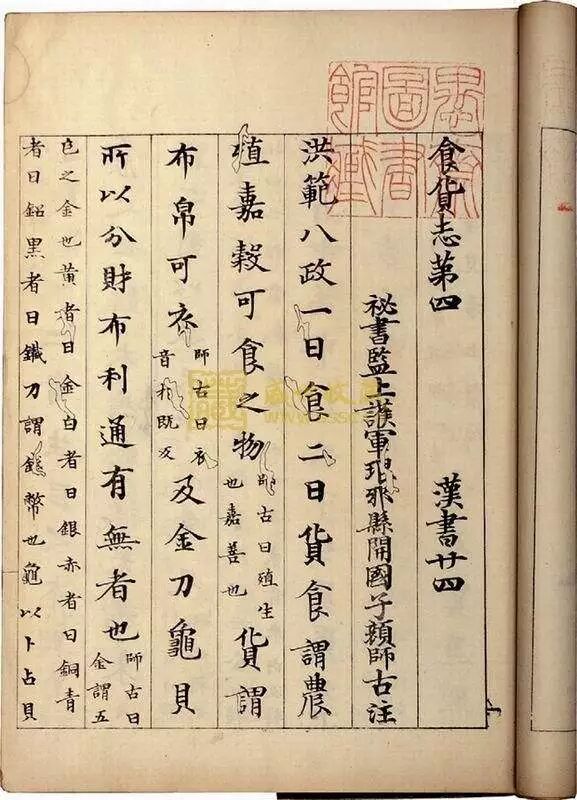 食貨志第四 漢書廿四
祕書監上護軍琅邪縣開國子顏師古注
洪範八政一曰食二曰貨食謂農
殖嘉穀可食之物師古曰殖生也嘉善也貨謂
布帛可衣師古曰衣音於既反及金刀龜貝
所以分財布利通有無者也師古曰金謂五
色之金也黃者曰金白者曰銀赤者曰銅青
者曰鉛黑者曰鐵刀謂錢幣也龜以卜占貝
圖書
館藏